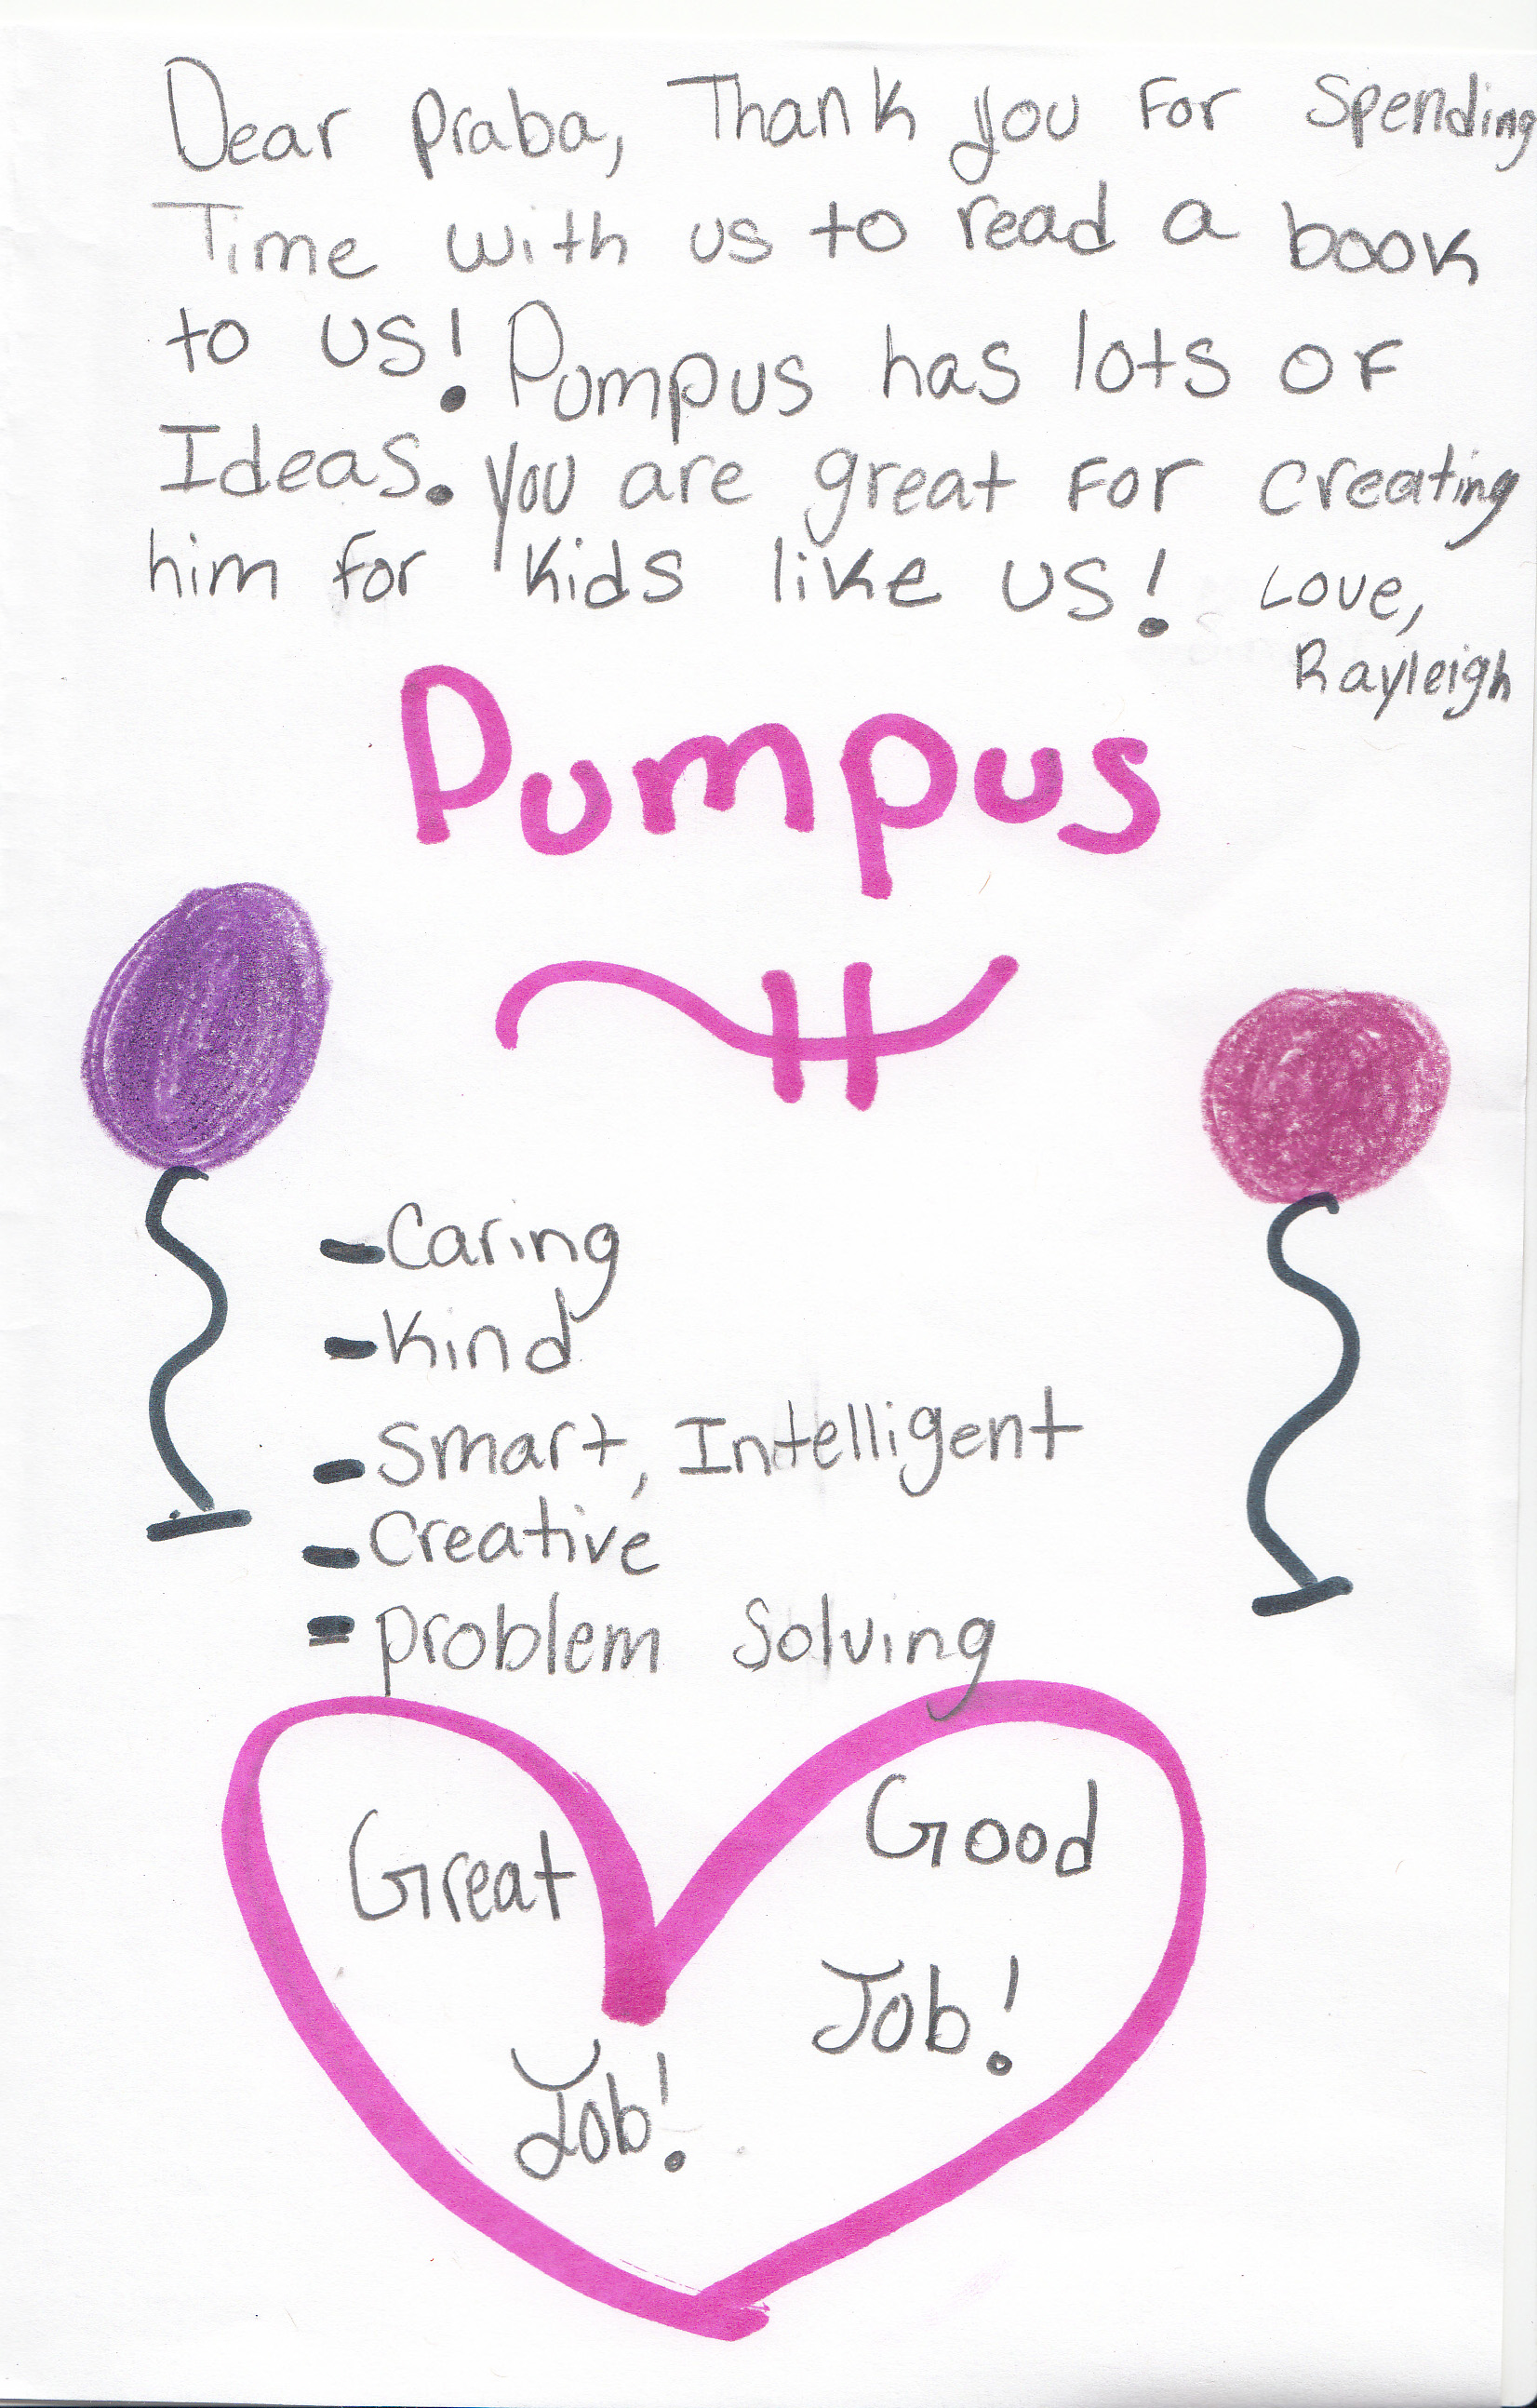 Dear praba, Thank you For Spending
Time with us to read a book
to us! Pumpus has lots OF
Ideas. you are great For creating
him for kids like us! Love,
Rayleigh
Pumpus
-Caring
-Kind
-Smart, Intelligent
-Creative
-problem Solving
Great Good
Job!
Job!